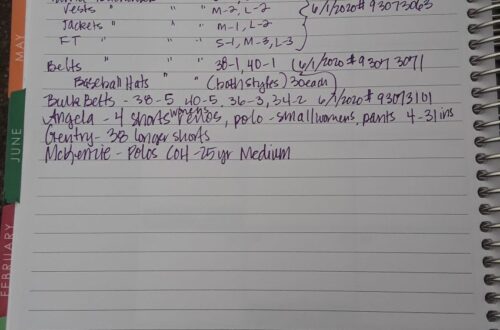 Vests " " " M-2, L-2 6/1/2020 # 93073063
Jackets " " " M-1, L-2
FT " " " S-1, M-3, L-3
Belts " " " 38-1, 40-1 (6/1/2020 # 93073071
Baseball Hats " " (both styles) 30 each
Bulk Belts - 38-5 40-5, 36-3, 34-2 6/1/2020 # 93073101
Angela - 4 shorts womens, polo - small womens, pants 4-31 ins
Gentry - 38 longer shorts
McKenzie - Polos COH - 25 yr Medium
MAY
JUNE
FEBRUARY